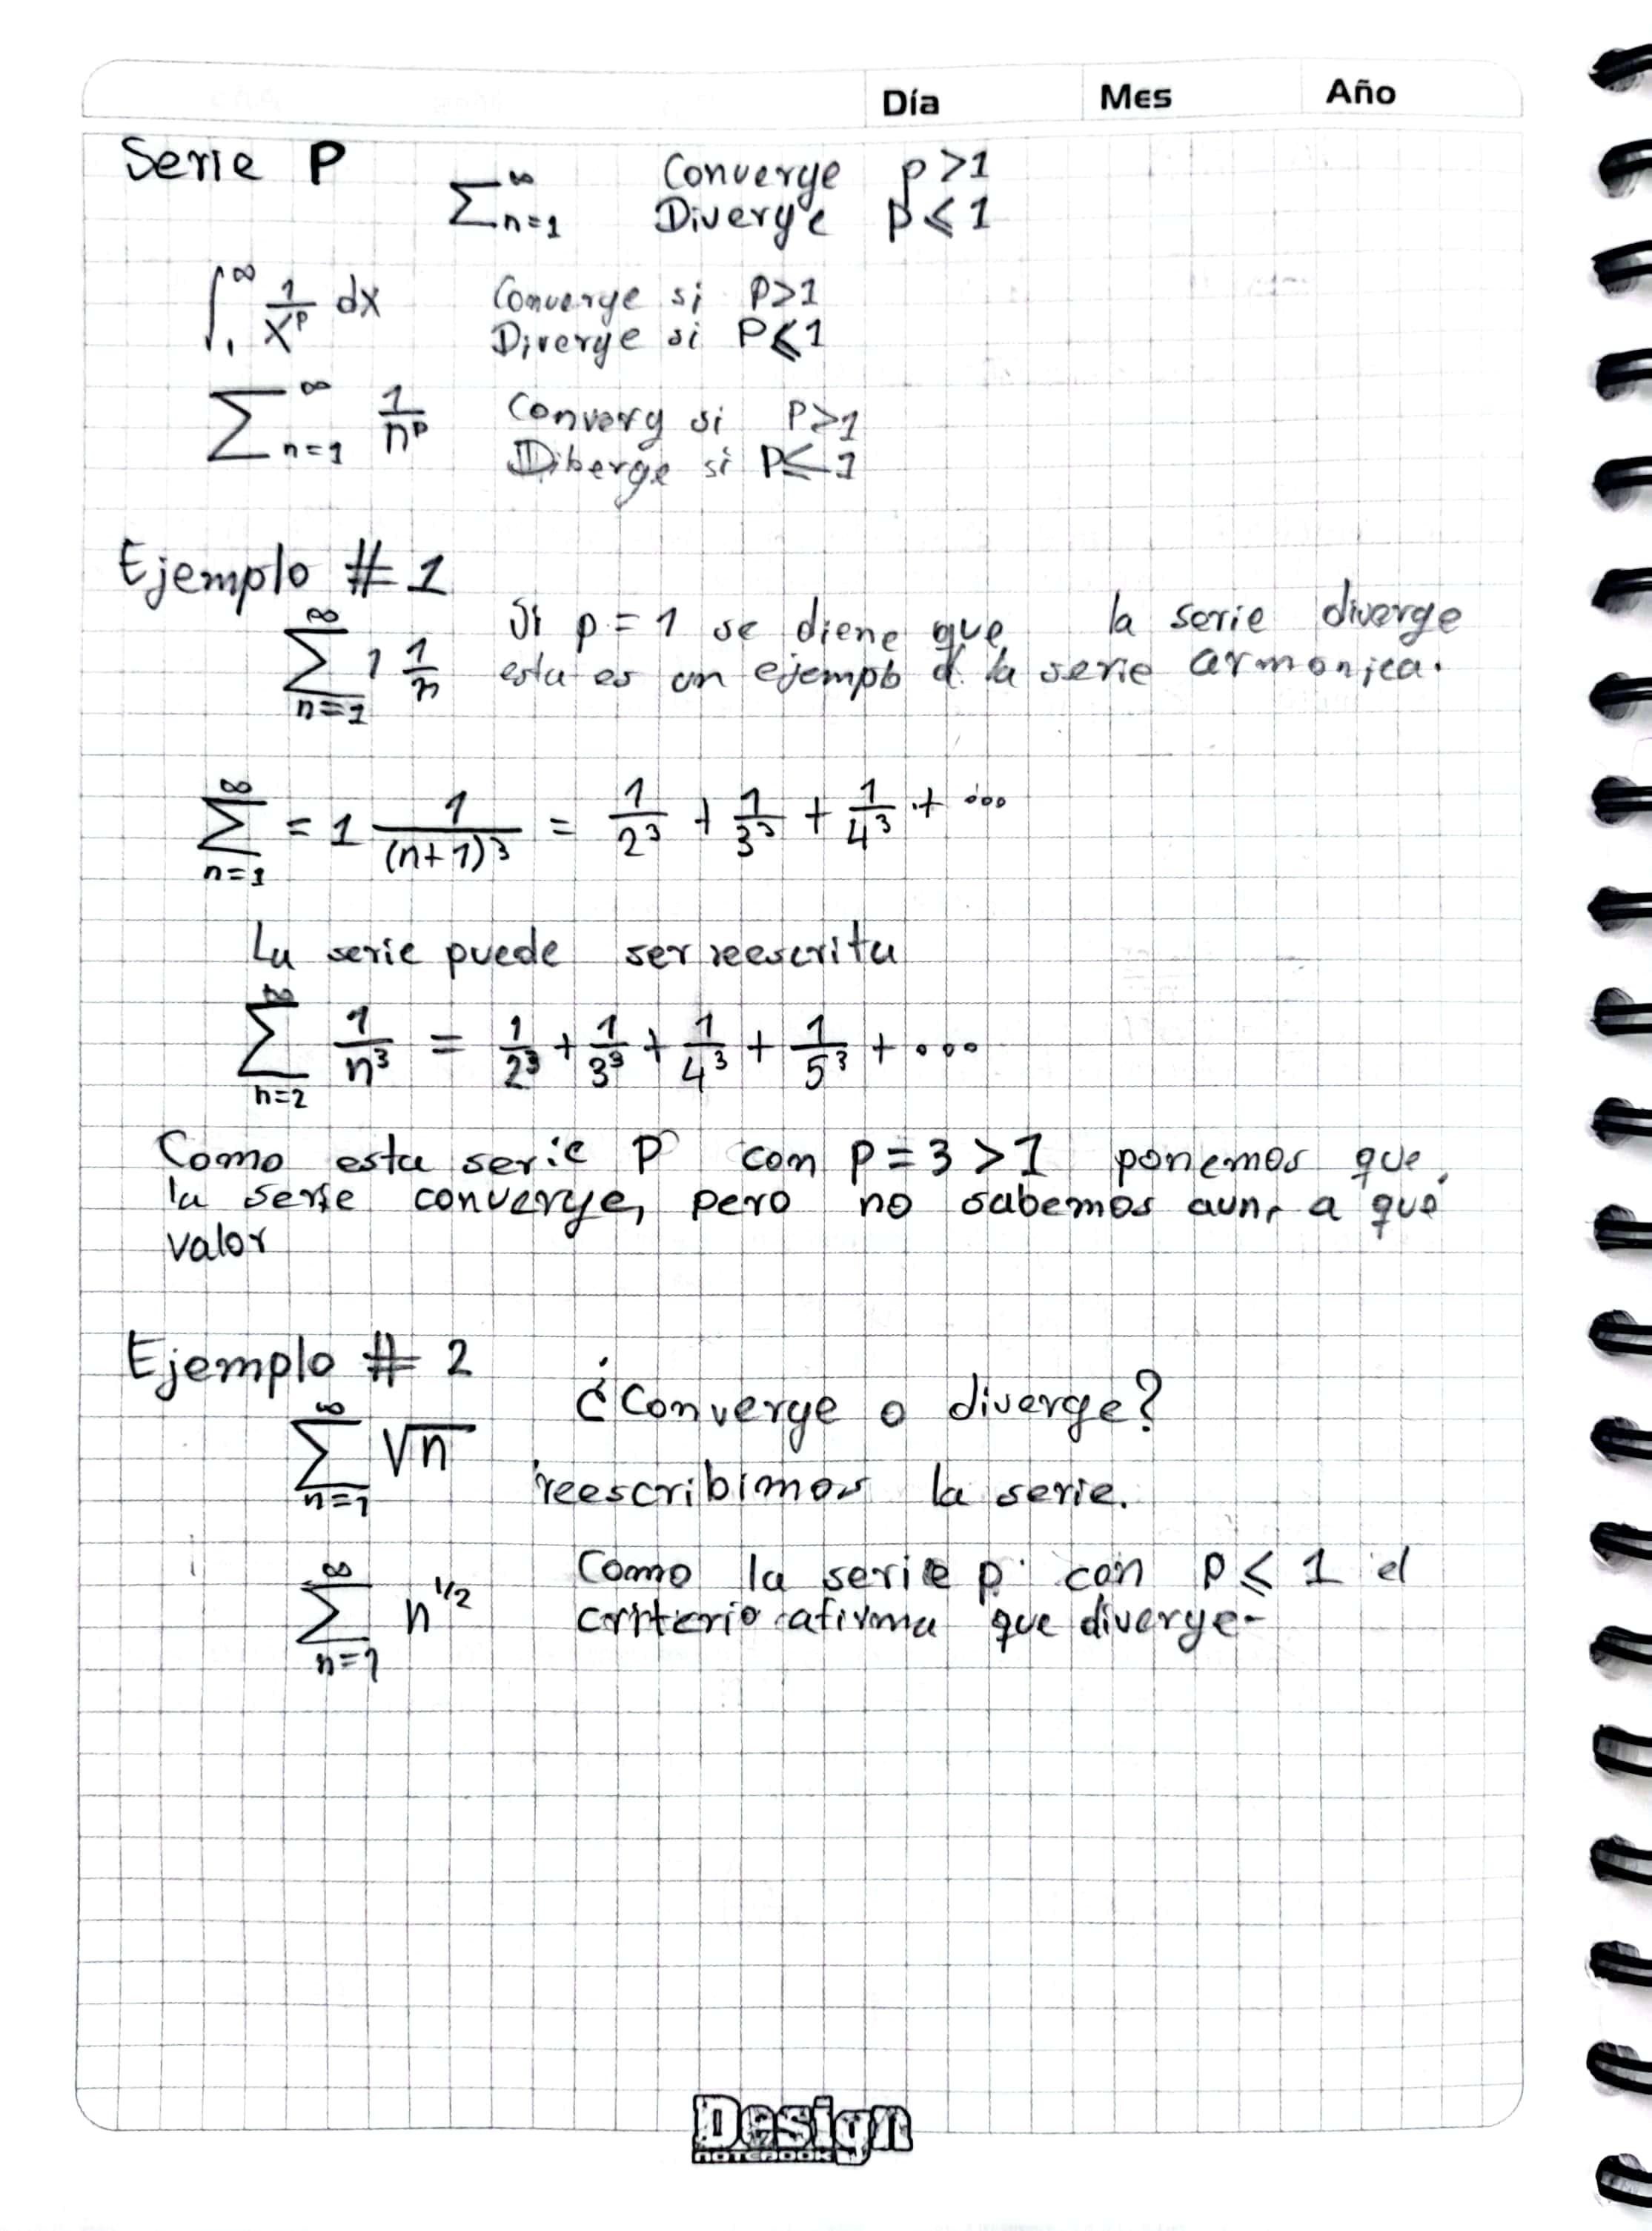 Día Mes Año
Serie P
∑_{n=1}^∞ Converge p>1
Diverge p≤1
∫_1^∞ 1/x^p dx Converge si P>1
Diverge si P≤1
∑_{n=1}^∞ 1/n^p Converg si P>1
Diberge si P≤1
Ejemplo #1
∑_{n=1}^∞ 1 1/n Si p=1 se diene que la serie diverge
esta es un ejemplo d la serie armonica.
∑_{n=1}^∞ = 1 1/(n+1)^3 = 1/2^3 + 1/3^3 + 1/4^3 + ...
La serie puede ser reescrita
∑_{n=2}^∞ 1/n^3 = 1/2^3 + 1/3^3 + 1/4^3 + 1/5^3 + ...
Como esta serie P con p=3>1 ponemos que
la serie converge, pero no sabemos aun, a que
valor
Ejemplo # 2
∑_{n=1}^∞ √n ¿Converge o diverge?
reescribimos la serie.
∑_{n=1}^∞ n^{1/2} Como la serie p con p≤1 el
criterio afirma que diverge-
Design
NOTEBOOK